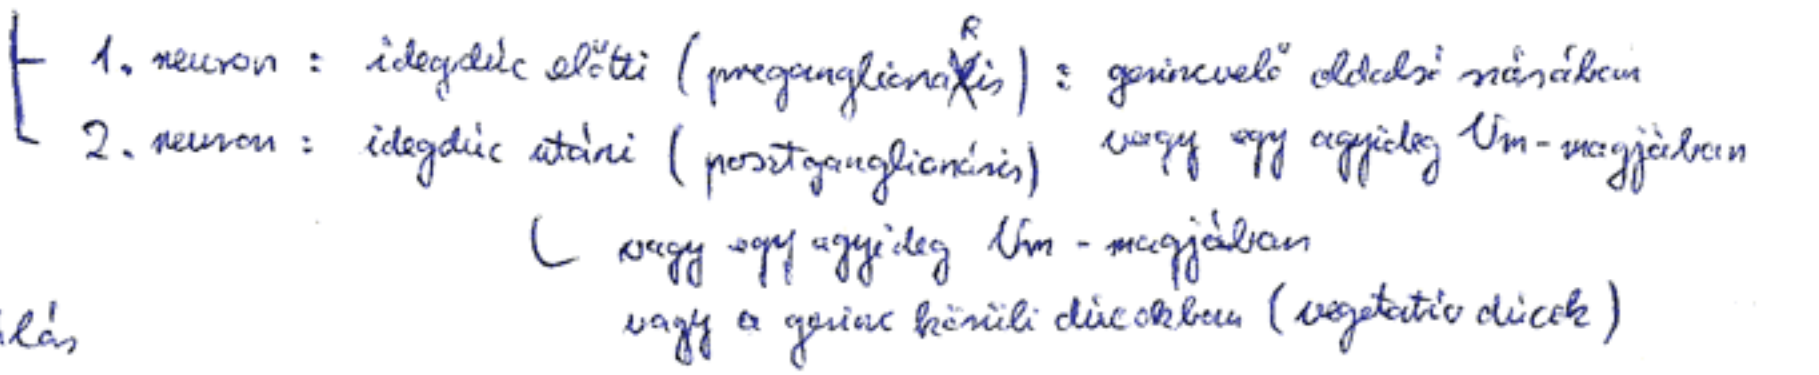 1. neuron : idegdúc előtti (preganglionaRis) : gerincvelő oldalsó részében
2. neuron : idegdúc utáni (posztganglionáris) vagy egy agyideg Vm-magjában
vagy egy agyideg Vm - magjában
vagy a gerinc körüli dúcokban (vegetatív dúcok)
lás